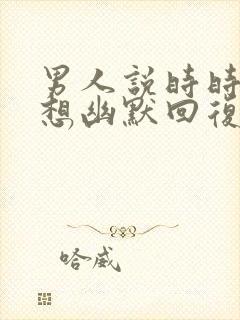 男人説時時
想幽默回復
哈威